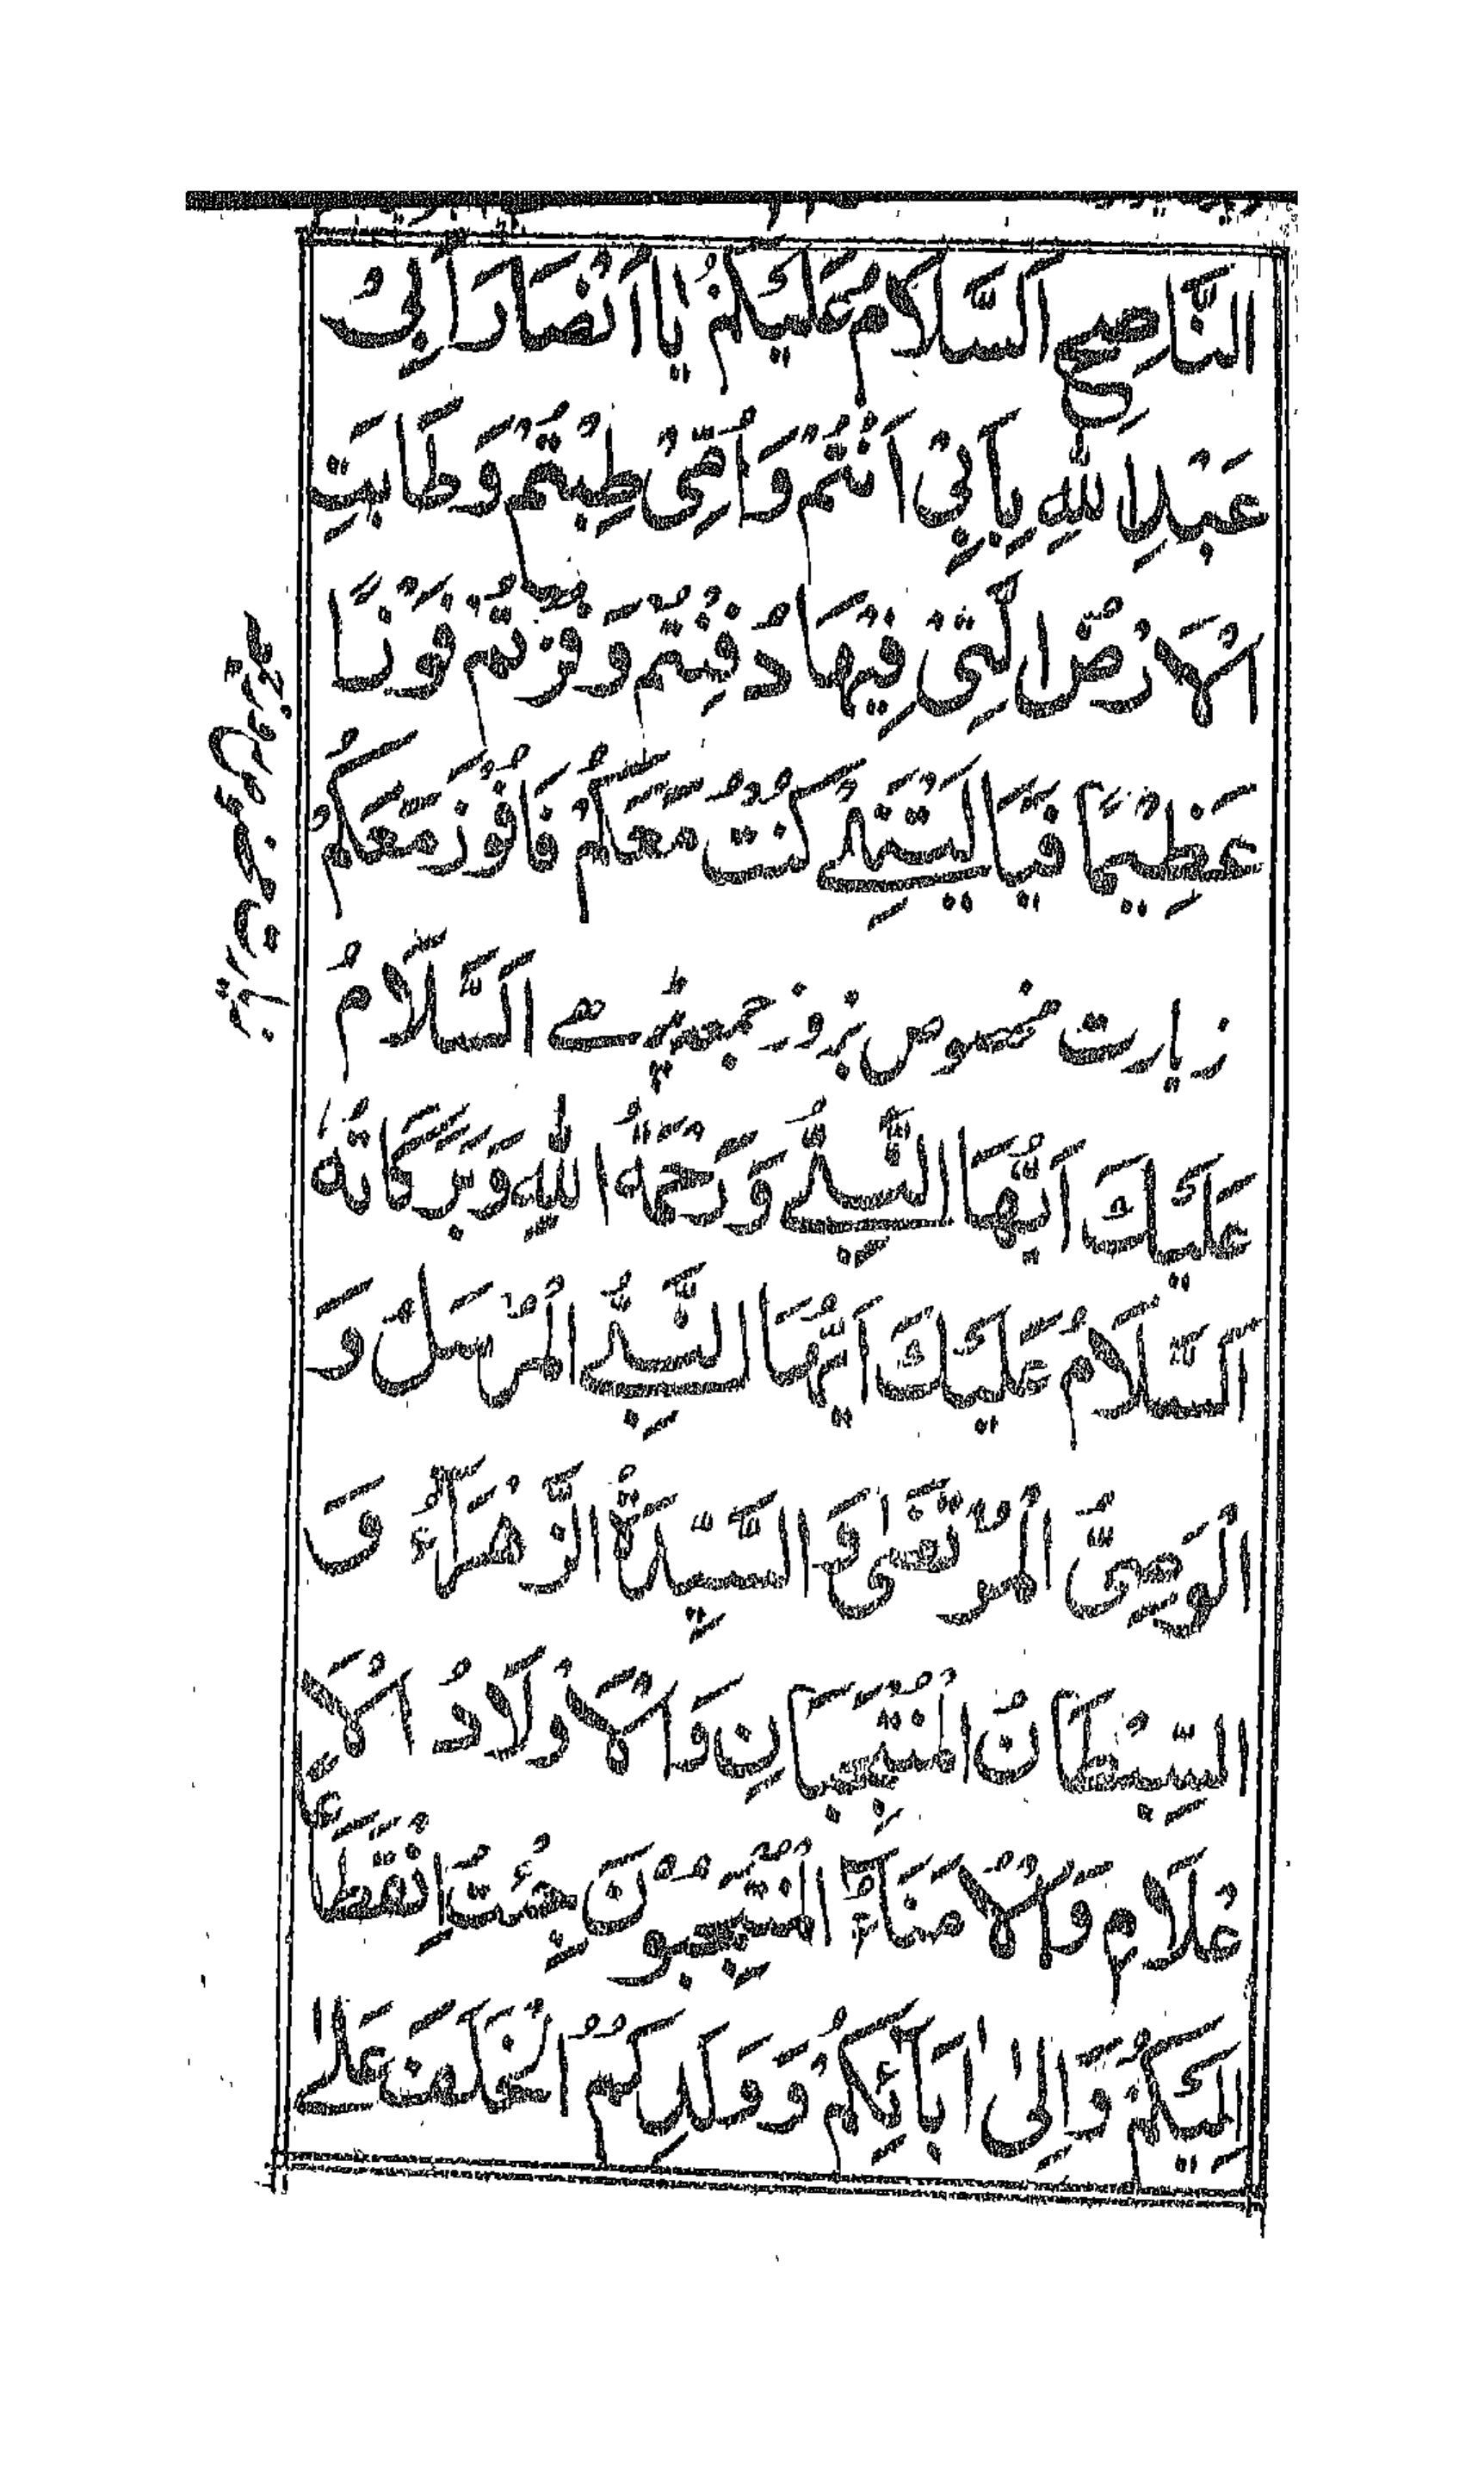 النَّاصِحِ اَلسَّلَامُ عَلَيْكُمْ يَا اَنْصَارَ اَبِيْ
عَبْدِ اللّٰهِ بِاَبِيْ اَنْتُمْ وَاُمِّيْ طِبْتُمْ وَطَابَتِ
الْاَرْضُ الَّتِيْ فِيْهَا دُفِنْتُمْ وَفُزْتُمْ فَوْزًا
عَظِيْمًا فَيَا لَيْتَنِيْ كُنْتُ مَعَكُمْ فَاَفُوْزَ مَعَكُمْ
زیارت مخصوص بروز جمعہ پڑھے اَلسَّلَامُ
عَلَيْكَ اَيُّهَا النَّبِيُّ وَرَحْمَةُ اللّٰهِ وَبَرَكَاتُهٗ
اَلسَّلَامُ عَلَيْكَ اَيُّهَا النَّبِيُّ الْمُرْسَلُ وَ
الْوَصِيُّ الْمُرْتَضٰى وَ السَّيِّدَةُ الزَّهْرَآءُ وَ
السِّبْطَانُ الْمُنْتَجَبَانِ وَالْاَوْلَادُ الْاَ
عْلَامِ وَالْاُمَنَآءُ الْمُنْتَجَبُوْنَ جِئْتُ اِنْقِطَاعًا
اِلَيْكُمْ وَاِلٰى اٰبَائِكُمْ وَوَلَدِكُمُ الْخَلَفِ عَلٰى